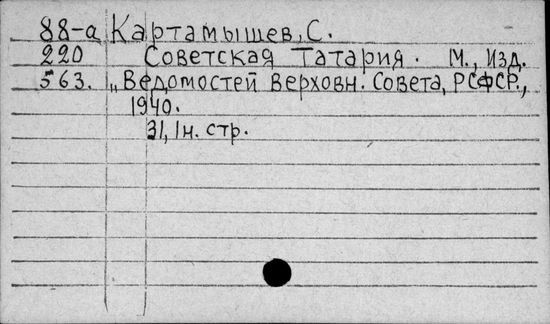 88-а Картамышев, С.
220 Советская Татария. М., изд.
563. „Ведомостей Верховн. Совета, РСФСР.,
1940.
31, 1н. стр.